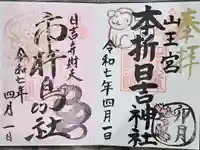 奉拝
山王宮
本折日吉神社
令和七年四月一日
卯月
日吉弁財天
市杵島姫社
令和七年
四月一日